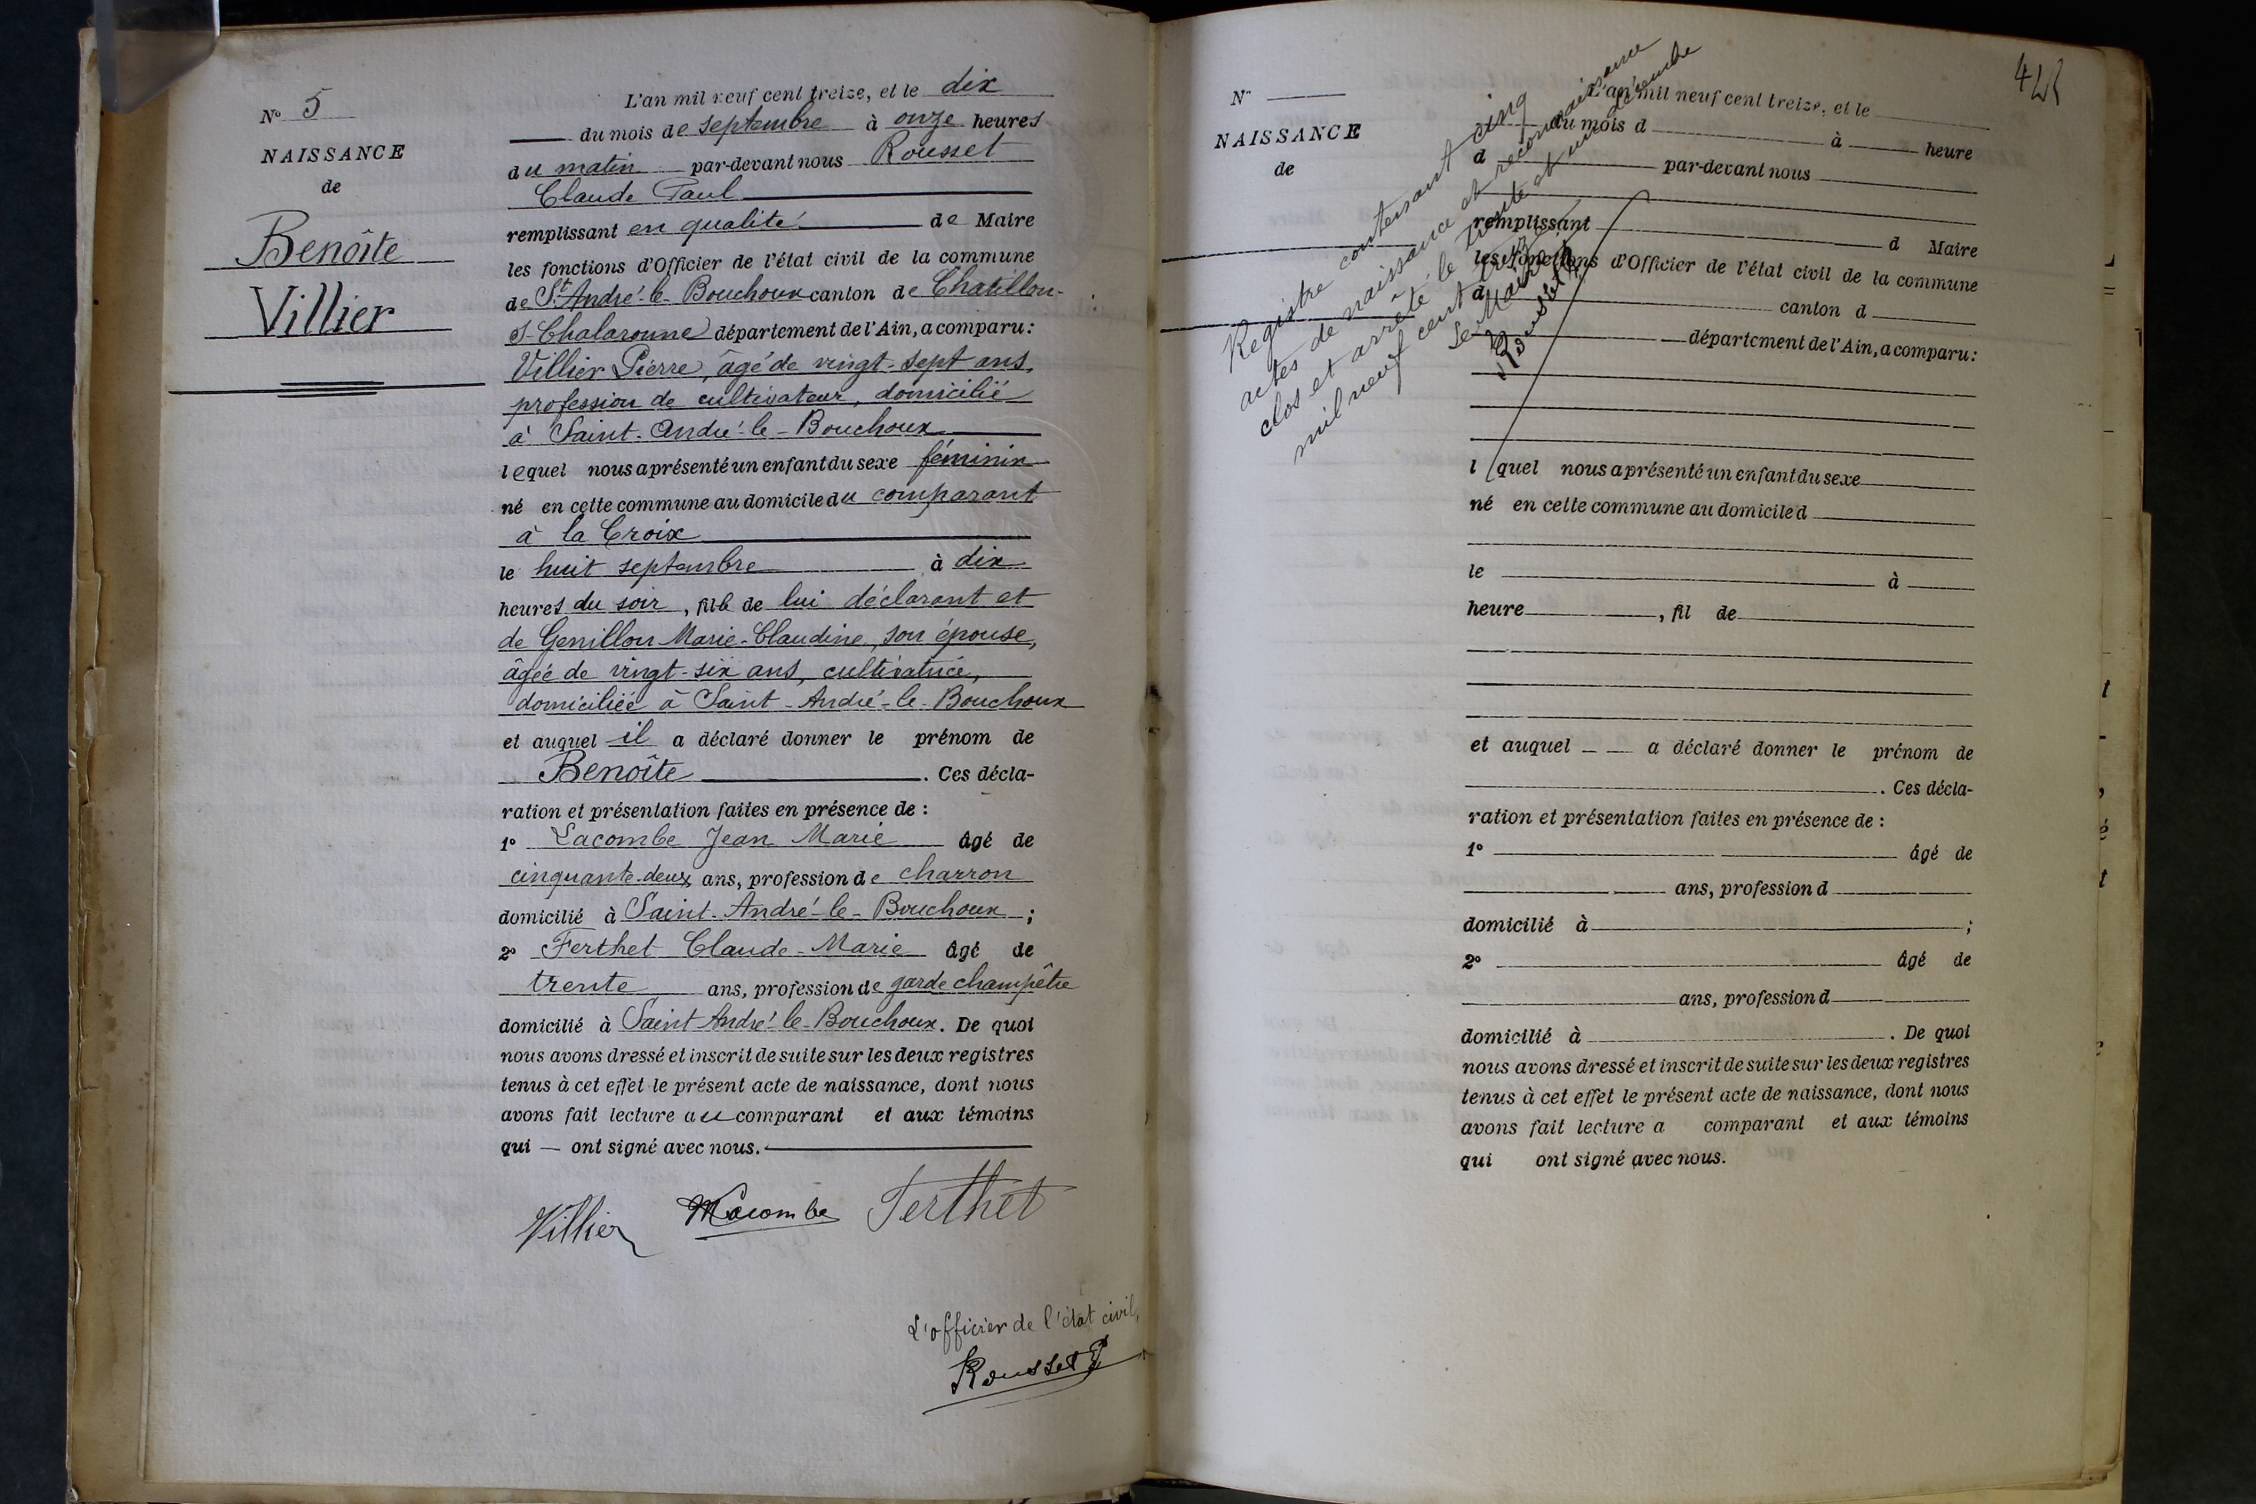 N° 5
NAISSANCE
de
Benoîte
Villier
L'an mil neuf cent treize, et le dix
du mois de septembre à onze heures
du matin par-devant nous Rousset
Claude Paul
remplissant en qualité de Maire
les fonctions d'Officier de l'état civil de la commune
de St André-le-Bouchoux canton de Chatillon-
s-Chalaronne département de l'Ain, a comparu :
Villier Pierre, âgé de vingt-sept ans,
profession de cultivateur, domicilié
à Saint-André-le-Bouchoux
lequel nous a présenté un enfant du sexe féminin
né en cette commune au domicile du comparant
à la Croix
le huit septembre à dix
heures du soir, fille de lui déclarant et
de Genillon Marie-Claudine, son épouse,
âgée de vingt-six ans, cultivatrice,
domiciliée à Saint-André-le-Bouchoux
et auquel il a déclaré donner le prénom de
Benoîte. Ces décla-
ration et présentation faites en présence de :
1° Lacombe Jean Marie âgé de
cinquante-deux ans, profession de charron
domicilié à Saint-André-le-Bouchoux ;
2° Ferthet Claude-Marie âgé de
trente ans, profession de garde champêtre
domicilié à Saint André-le-Bouchoux. De quoi
nous avons dressé et inscrit de suite sur les deux registres
tenus à cet effet le présent acte de naissance, dont nous
avons fait lecture au comparant et aux témoins
qui — ont signé avec nous.
Villier Macombe Ferthet
L'officier de l'état civil,
Rousset P
N°
NAISSANCE
de
Registre contenant cinq
actes de naissance et reconnaissance
clos et arrêté le trente et un décembre
mil neuf cent treize
Le Maire
Rousset P
L'an mil neuf cent treize, et le
du mois d à heure
d par-devant nous
remplissant d Maire
les fonctions d'Officier de l'état civil de la commune
d canton d
département de l'Ain, a comparu :
l quel nous a présenté un enfant du sexe
né en cette commune au domicile d
le à
heure , fil de
et auquel a déclaré donner le prénom de
. Ces décla-
ration et présentation faites en présence de :
1° âgé de
ans, profession d
domicilié à ;
2° âgé de
ans, profession d
domicilié à . De quoi
nous avons dressé et inscrit de suite sur les deux registres
tenus à cet effet le présent acte de naissance, dont nous
avons fait lecture a comparant et aux témoins
qui ont signé avec nous.